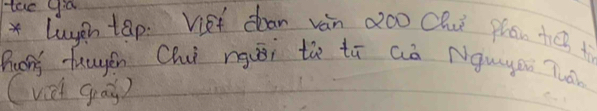 tác giả
* Luyện tập: Viết đoạn văn 200 chữ phân tích tìn
huống truyện Chữ người tử tù của Nguyễn Tuân
(viết giấy)